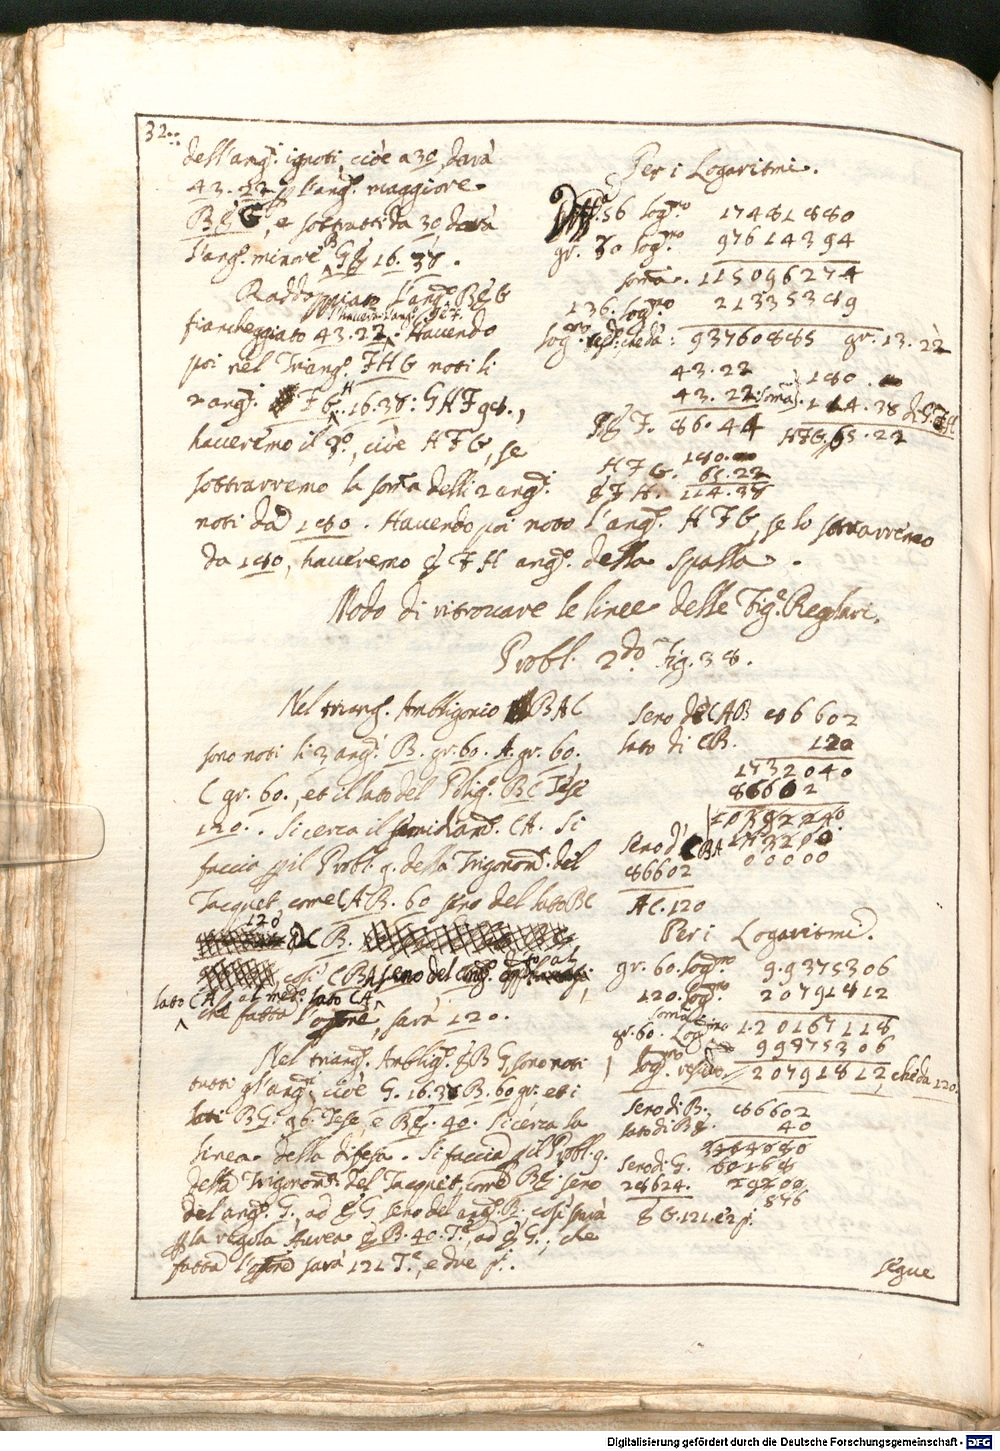 32
dell'ang.i ignoti, cioè a 30, darà
43.22 p l'ang.o maggiore
e sottratti da 30, darà
l'ang.o minore 16.38.
Raddoppiato l'ang.o
fiancheggiato 43.22. Havendo
poi nel Triang.o FHG noti li
2 ang.i 16.38: GHF 98.,
haveremo il 3.o, cioè HFG, se
sottrarremo la som.a delli 2 ang.i
noti da 180. Havendo poi noto l'ang.o HFG, se lo sottrarremo
da 180, haveremo FH ang.o della spalla.
Per i Logaritmi.
56 log.mo 17481880
gr. 30 log.mo 97614394
som.a. 115096274
136. log.mo 21335389
che dà: 93760885 gr. 13.22
43.22
43.22: som.a 180.
114.38
F. 86.44 HFG. 65.22
HFG. 180.
65.22
FH. 114.38
Modo di ritrovare le linee delle Fig.e Regolari.
Probl. 2do Fig. 38.
Nel triang.o Ambligonio BAC
sono noti li 3 ang.i B. gr. 60. A. gr. 60.
C gr. 60., et il lato del Polig.o BC Tese
120.. Si cerca il semidiam.o CA. Si
faccia p il Probl. 9. della Trigonom.a del
Tacquet, come CAB. 60 seno del lato BC
120
CB.
così CBA seno del
lato CA al med.o lato CA
che fatta l'op.ne, sarà 120.
Nel triang.o Ambllig.o BG sono noti
tutti gl'ang.i, cioè G. 16.38 B. 60 gr., et i
lati BG. 96. Tese, e B 40. Si cerca la
linea della difesa. Si faccia p il Probl. 9.
della Trigonom.a del Tacquet, come B seno
del ang.o G. ad G seno del ang.o B; così sarà
p la regola Aurea B. 40. T.e, ad G., che
fatta l'op.ne sarà 121 T.e, e due p.
Seno di CAB 86602
lato di CB. 120
1732040
86602
10392240
Seno di CBA
86602 00000
AC. 120
Per i Logaritmi.
gr. 60. log.mo 9.9375306
120. log.mo 20791812
som.a 120167118
gr. 60. Log.mo 99375306
log.mo residuo 20791812, che dà 120.
Seno di B. 86602
lato di B 40
3464080
Seno di G. 60168
28624. 29200
576
G. 121. e 2 p.
segue
Digitalisierung gefördert durch die Deutsche Forschungsgemeinschaft - DFG